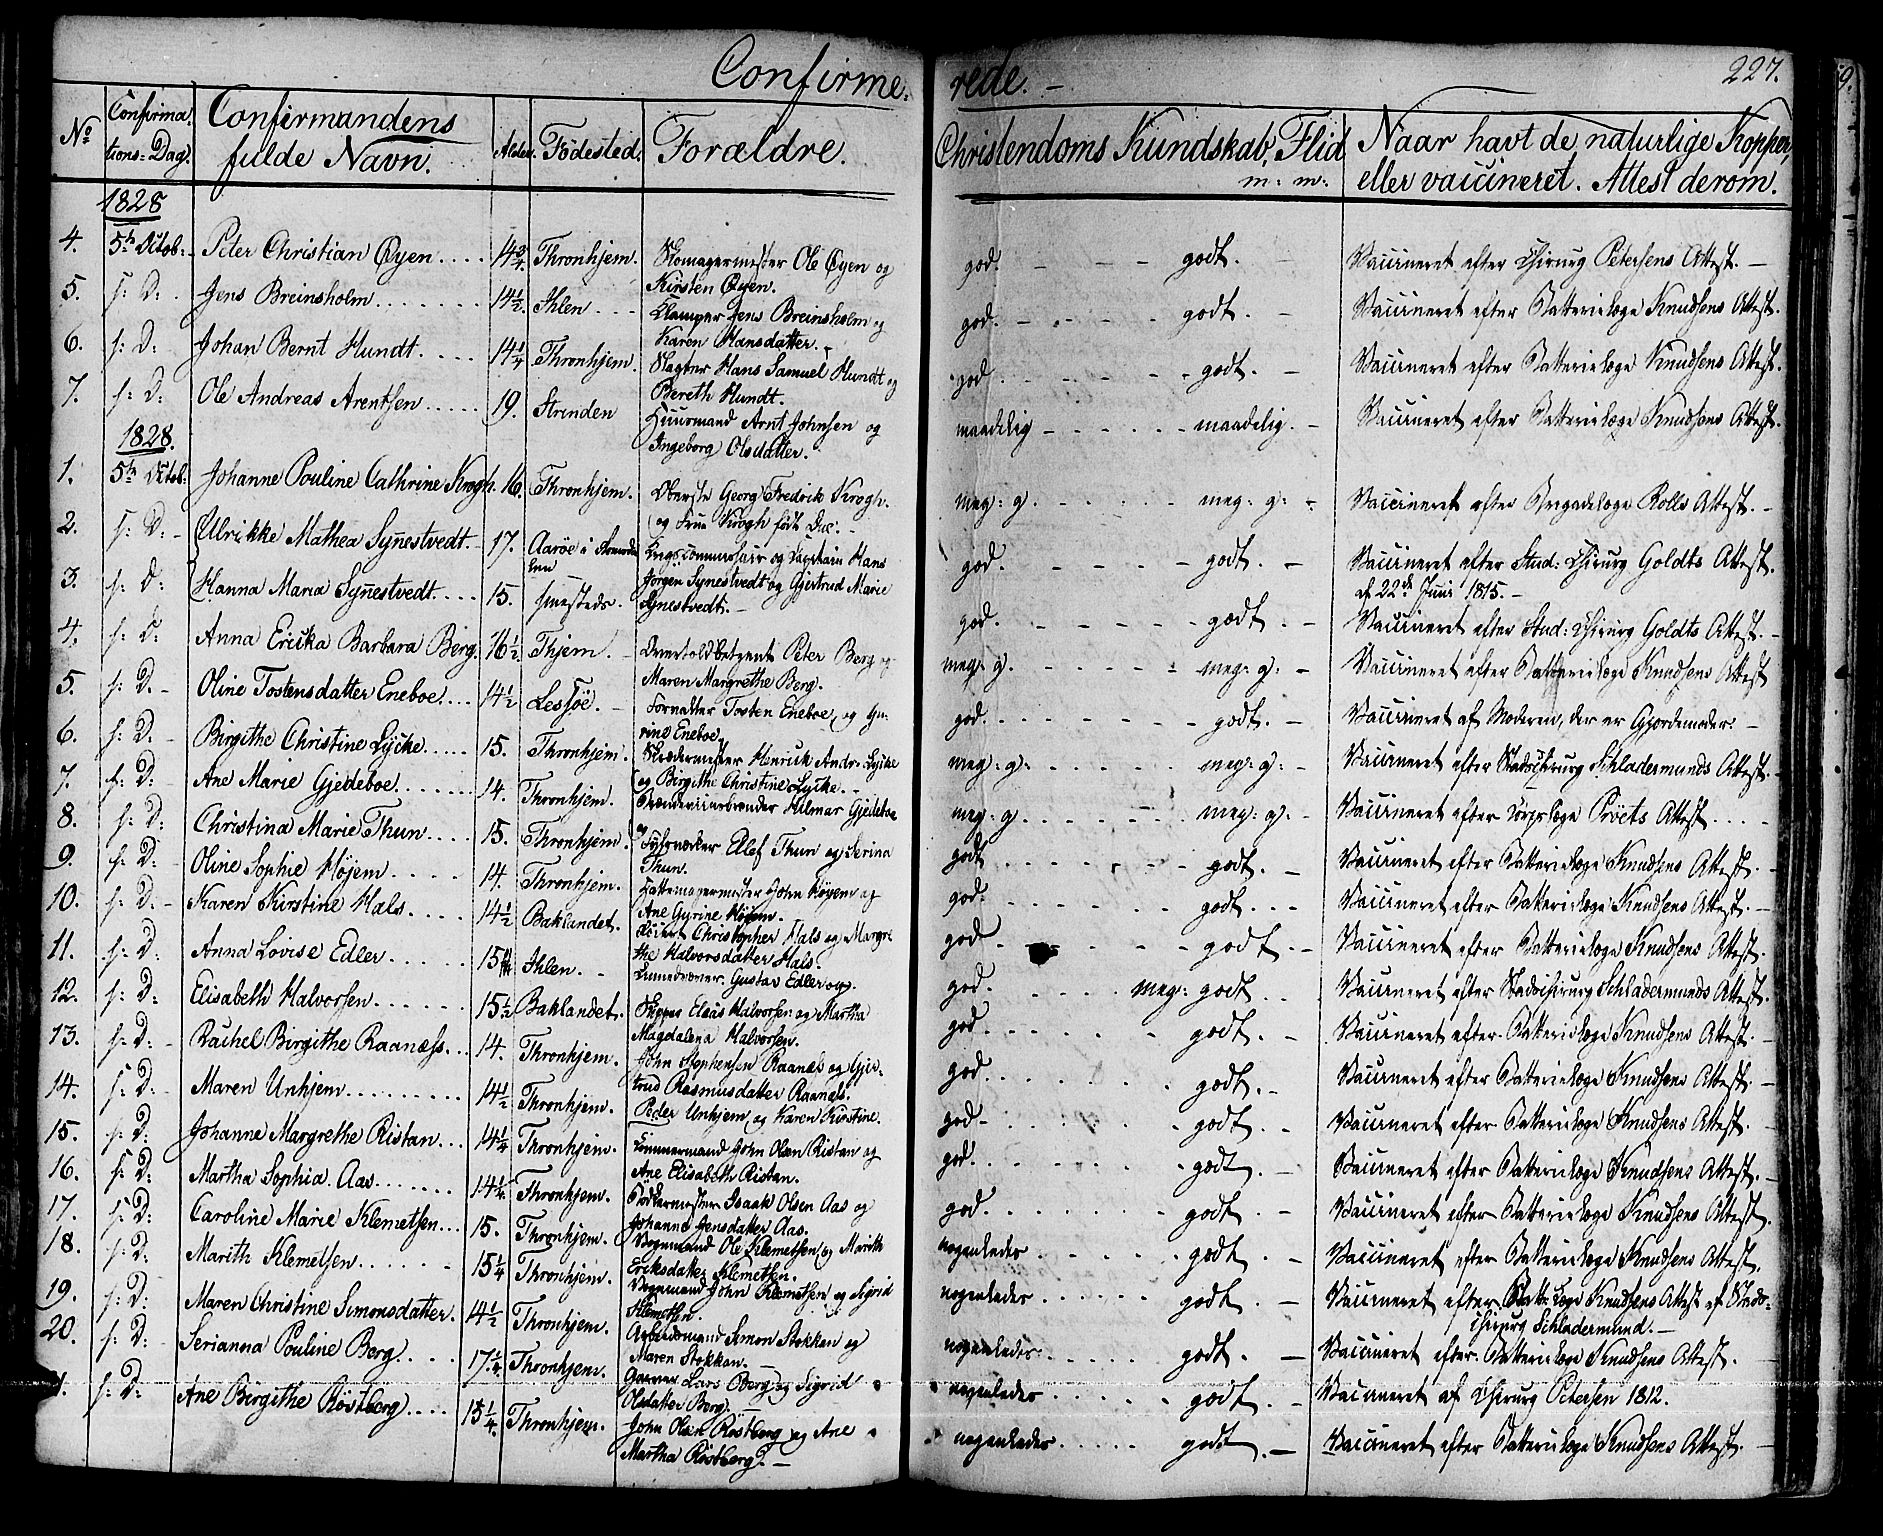 Confirme= rede. – 227.
No Confirmations=Dag. Confirmandens fulde Navn. Alder. Födested. Forældre. Christendoms Kundskab, Flid m: m: Naar havt de naturlige Kopper, eller vaccineret. Attest derom.
1828
4. 5te Octob: Peter Christian Øyen.... 14¾. Thronhjem. Skomagermester Ole Øyen og Kirsten Øyen. god. godt. Vaccineret efter Chirurg Petersens Attest. –
5. s: D: Jens Breinsholm....... 14½. Ihlen... Klamper Jens Breinsholm og Karen Hansdatter. god. godt. Vaccineret efter Batterielæge Knudsens Attest.
6. s: D: Johan Bernt Hundt..... 14¼. Thronhjem. Slagter Hans Samuel Hundt og Bereth Hundt. god. godt. Vaccineret efter Batterielæge Knudsens Attest.
7. s: D: Ole Andreas Arentsen..... 19. Strinden Huusmand Arnt Johnsen og Ingeborg Olsdatter. maadelig maadelig. Vaccineret efter Batterielæge Knudsens Attest.
1828.
1. 5te Octob: Johanne Pouline Cathrine Krogh. 16. Thronhjem. Oberste Georg Fredrik Krogh. og Frue Krogh født meg: g. meg: g: Vaccineret efter Brigadelæge Rolls Attest. –
2. s: D: Ulrikke Mathea Synestvedt. 17. Aarøe i Krigscommissair og Capitain Hans god. godt. Vaccineret efter Stud: Chirurg Goldts Attest. af 22de Juni 1815. –
3. s: D: Hanna Maria Synestvedt.... 15. sammesteds. Jörgen Synestvedt og Gjertrud Marie Synestvedt. – god. godt. Vaccineret efter Stud: Chirurg Goldts Attest. –
4. s: D: Anna Ericka Barbara Berg. 16½ Thjem. Overtoldbetjent Peter Berg og Maren Margrethe Berg. meg: g. meg: g: Vaccineret efter Batterielæge Knudsens Attest
5. s: D: Oline Tostensdatter Eneboe.... 14½ Lessøe. Forvalter Tosten Eneboe og Gurine Eneboe. god. godt. Vaccineret af Moderen, der er Gjordemoder. –
6. s: D: Birgithe Christine Lycke..... 15. Thronhjem. Skrædermester Henrick Andr: Lycke og Birgithe Christine Lycke. meg: g: meg: g: Vaccineret efter Stadschirurg Schladermunds Attest.
7. s: D: Ane Marie Gjedeboe....... 14. Thronhjem. Brændeviinbrænder Hilmar Gjedeboe og meg: g meg: g: Vaccineret efter Corpslæge Pröets Attest....
8. s: D: Christina Marie Thun..... 15. Thronhjem. Ellef Thun og Serina Thun. godt godt. Vaccineret efter Batterielæge Knudsens Attest.
9. s: D: Oline Sophie Höjem..... 14. Thronhjem. Hattemagermester John Höyem og Ane Gyrine Höyem. god. godt. Vaccineret efter Batterielæge Knudsens Attest. –
10. s: D: Karen Kirstine Hals.... 14½ Baklandet. Christopher Hals og Margrethe Halvorsdatter Hals. god. godt. Vaccineret efter Batterielæge Knudsens Attest.
11. s: D: Anna Lovise Edler...... 15 Ihlen. Gustav Edler og. god. meg: godt.. Vaccineret efter Stadschirurg Schladermunds Attest.
12. s: D: Elisabeth Halvorsen...... 15½ Baklandet. Elias Halvorsen og Martha Magdalena Halvorsen. god. godt. Vaccineret efter Batterielæge Knudsens Attest.
13. s: D: Rachel Birgithe Raanæss... 14. Thronhjem. John Stephensen Raanæs og Gjertrud Rasmusdatter Raanæs. god. godt. Vaccineret efter Batterielæge Knudsens Attest.
14. s: D: Maren Unhjem......... 14½ Thronhjem. Peder Unhjem og Karen Kirstine. god. godt. Vaccineret efter Batterielæge Knudsens Attest.
15. s: D: Johanne Margrethe Ristan... 14¼ Thronhjem. John Olsen Ristan og Ane Elisabeth Ristan. god. godt. Vaccineret efter Batterielæge Knudsens Attest.
16. s: D: Martha Sophia Aas....... 14¼ Thronhjem. Bödkermester Isaak Olsen Aas og Johanna Jensdatter Aas. god. godt. Vaccineret efter Batterielæge Knudsens Attest.
17. s: D: Caroline Marie Klemetsen... 15. Thronhjem. Vognmand Ole Klemetsen og Marith Eriksdatter Klemetsen. nogenledes godt. Vaccineret efter Batterielæge Knudsens Attest.
18. s: D: Marith Klemetsen...... 15¼ Thronhjem. Vognmand John Klemetsen og Sigrid Klemetsen. nogenledes godt. Vaccineret efter Batt: Læge Knudsens Attest af Stads= chirurg Schladermund. –
19. s: D: Maren Christine Simonsdatter. 14½ Thronhjem. Arbeidsmand Simon Stokkan og Maren Stokkan. nogenledes godt. Vaccineret efter Batterielæge Knudsens Attest.
20. s: D: Serianna Pouline Berg.... 17¼ Thronhjem. Lars Berg og Sigrid Olsdatter Berg. nogenledes godt. Vaccineret af Chirurg Petersen 1812.
1. s: D: Ane Birgithe Röstberg.... 15¼. Thronhjem. John Olsen Rostberg og Ane Martha Röstberg. – nogenledes godt. Vaccineret efter Batterielæge Knudsens Attest.